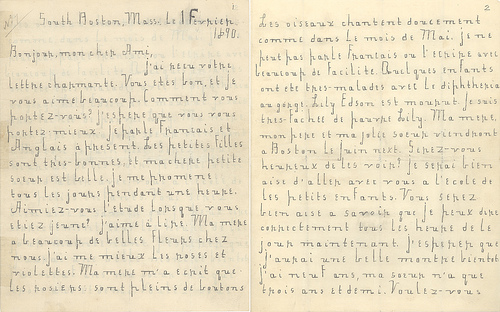 1
South Boston, Mass. le 1 Fevrier,
1890.
Bonjour, mon cher Ami,
j'ai reçu votre
lettre charmante. Vous etes bon, et je
vous aime beaucoup. Comment vous
portez-vous? j'espere que vous vous
portez-mieux. je parle Francais et
Anglais à present. Les petites filles
sont tres-bonnes, et ma chere petite
sœur est belle. je me promene
tous les jours pendant une heure.
Aimiez-vous l'etude lorsque vous
etiez jeune? j'aime à lire. Ma mere
a beaucoup de belles fleurs chez
nous. j'ai me mieux les roses et
violettes. Ma mere m'a ecrit que
les rosiers sont pleins de boutons
2
Les oiseaux chantent doucement
comme dans le mois de Mai. je ne
peut pas parle Francais ou l'ecrire avec
beaucoup de facilite. Quelques enfants
ont ete tres-malades avec le diphtheria
au gorge. Lily Edson est mourut. je suis
tres-fachee de pauvre Lily. Ma mere,
mon pere et ma jolie sœur viendront
a Boston le juin next. Serez-vous
heureux de les voir? je serai bien
aise d'aller avec vous a l'ecole de
les petits enfants. Vous serez
bien aise a savoir que je peux dire
correctement tous les heure de le
jour maintenant. j'esperer que
j'aurai une belle montre bientot
j'ai neuf ans, ma sœur n'a que
trois ans et demi. Voulez-vous